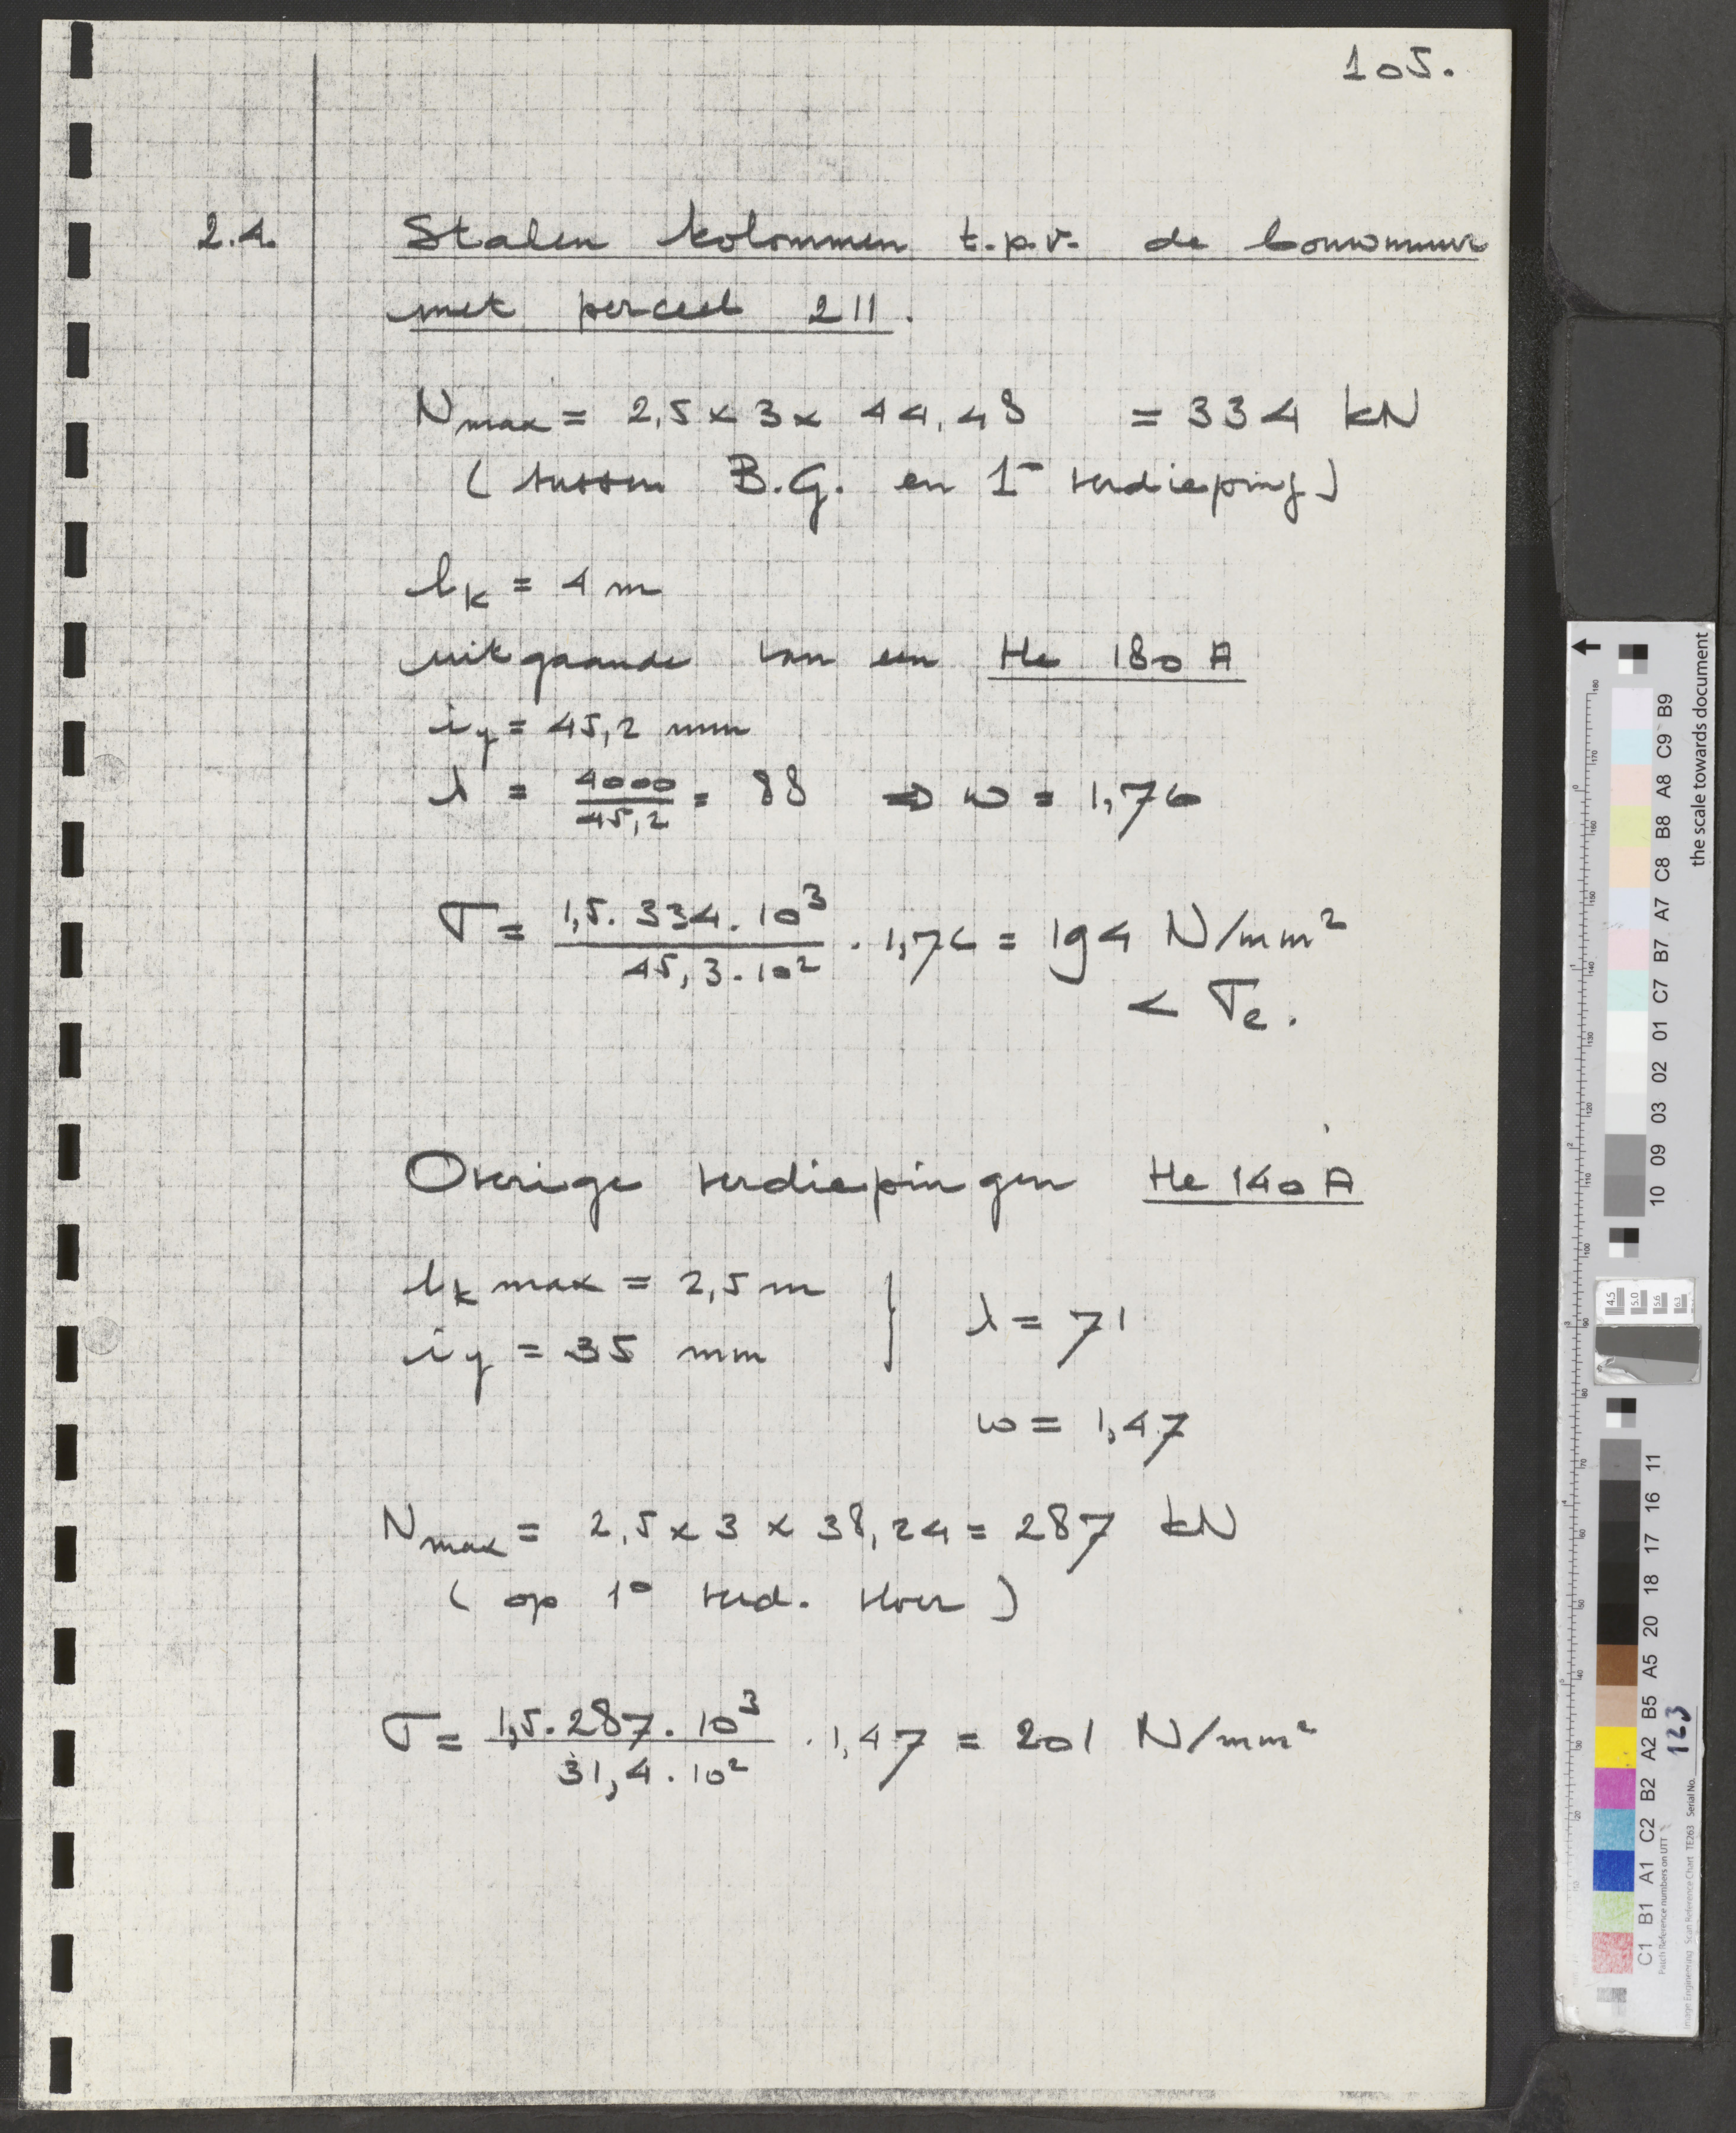 105.
2.4. Stalen kolommen t.p.v. de bouwmuur
met perceel 211.
Nmax = 2,5 x 3 x 44,48 = 334 kN
( tussen B.G. en 1e verdieping )
lk = 4 m
uitgaande van een He 180 A
iy = 45,2 mm
λ = 4000/45,2 = 88 ⇒ ω = 1,76
σ = 1,5 . 334 . 10³ / 45,3 . 10² . 1,76 = 194 N/mm²
< σe .
Overige verdiepingen He 140 A
lk max = 2,5 m } λ = 71
iy = 35 mm
ω = 1,47
Nmax = 2,5 x 3 x 38,24 = 287 kN
( op 1e verd. vloer )
σ = 1,5 . 287 . 10³ / 31,4 . 10² . 1,47 = 201 N/mm²
the scale towards document
B9 C9 A8 B8 C8 A7 B7 C7 01 02 03 09 10
11 16 17 18 20 A5 B5 A2 B2 C2 A1 B1 C1
4.5 5.0 5.6 6.3
Image Engineering Scan Reference Chart TE263 Serial No. 123
Patch Reference numbers on UTT